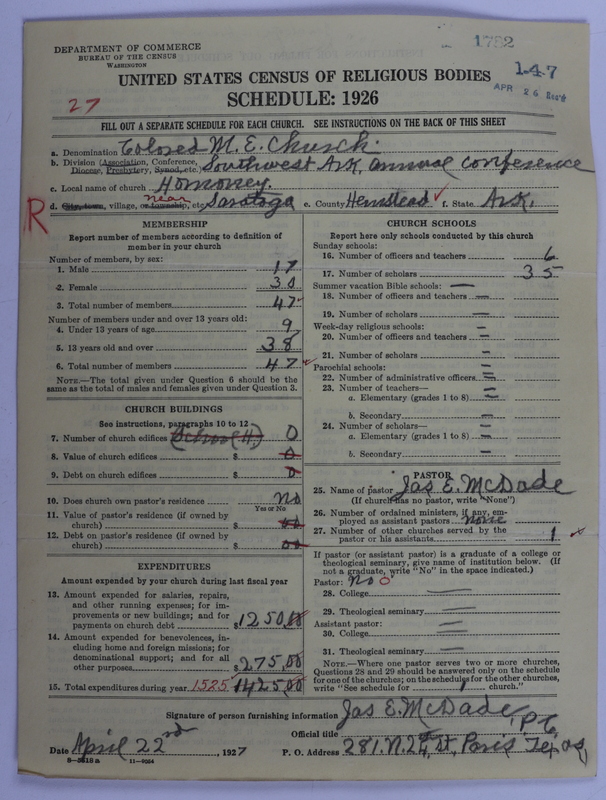 DEPARTMENT OF COMMERCE
BUREAU OF THE CENSUS
WASHINGTON
1782
147
APR 26
27
UNITED STATES CENSUS OF RELIGIOUS BODIES
SCHEDULE: 1926
FILL OUT A SEPARATE SCHEDULE FOR EACH CHURCH. SEE INSTRUCTIONS ON THE BACK OF THIS SHEET
a. Denomination Colored M. E. Church.
b. Division (Association, Conference, Diocese, Presbytery, Synod, etc.) Southwest Ark, annual conference
c. Local name of church Homoney.
R
d. City, town, village, or township, etc. near Saratoga e. County Hemstead ✓ f. State Ark.
MEMBERSHIP
Report number of members according to definition of
member in your church
Number of members, by sex:
1. Male 17
2. Female 30
3. Total number of members 47
Number of members under and over 13 years old:
4. Under 13 years of age 9
5. 13 years old and over 38
6. Total number of members 47 ✓
NOTE.—The total given under Question 6 should be the
same as the total of males and females given under Question 3.
CHURCH BUILDINGS
See instructions, paragraphs 10 to 12
7. Number of church edifices (School (H) 0
8. Value of church edifices $ 0
9. Debt on church edifices $ 0
10. Does church own pastor's residence No
Yes or No
11. Value of pastor's residence (if owned by
church) $ 00
12. Debt on pastor's residence (if owned by
church) $ 00
EXPENDITURES
Amount expended by your church during last fiscal year
13. Amount expended for salaries, repairs,
and other running expenses; for im-
provements or new buildings; and for
payments on church debt $ 1250.00
14. Amount expended for benevolences, in-
cluding home and foreign missions; for
denominational support; and for all
other purposes $ 275.00
15. Total expenditures during year 1525 1425.00
CHURCH SCHOOLS
Report here only schools conducted by this church
Sunday schools:
16. Number of officers and teachers 6
17. Number of scholars 35
Summer vacation Bible schools: —
18. Number of officers and teachers —
19. Number of scholars —
Week-day religious schools: —
20. Number of officers and teachers —
21. Number of scholars —
Parochial schools: —
22. Number of administrative officers —
23. Number of teachers—
a. Elementary (grades 1 to 8) —
b. Secondary —
24. Number of scholars—
a. Elementary (grades 1 to 8) —
b. Secondary —
PASTOR
25. Name of pastor Jas E. McDade
(If church has no pastor, write "None")
26. Number of ordained ministers, if any, em-
ployed as assistant pastors none
27. Number of other churches served by the
pastor or his assistants 1
If pastor (or assistant pastor) is a graduate of a college or
theological seminary, give name of institution below. (If
not a graduate, write "No" in the space indicated.)
Pastor: No 0
28. College —
29. Theological seminary —
Assistant pastor: —
30. College —
31. Theological seminary —
NOTE.—Where one pastor serves two or more churches,
Questions 28 and 29 should be answered only on the schedule
for one of the churches; on the schedules for the other churches,
write "See schedule for 1 church."
Signature of person furnishing information Jas E. McDade
Official title P.C.
Date April 22nd, 1927 P. O. Address 281. N. 24th St, Paris Texas
8—5618 a 11—9264